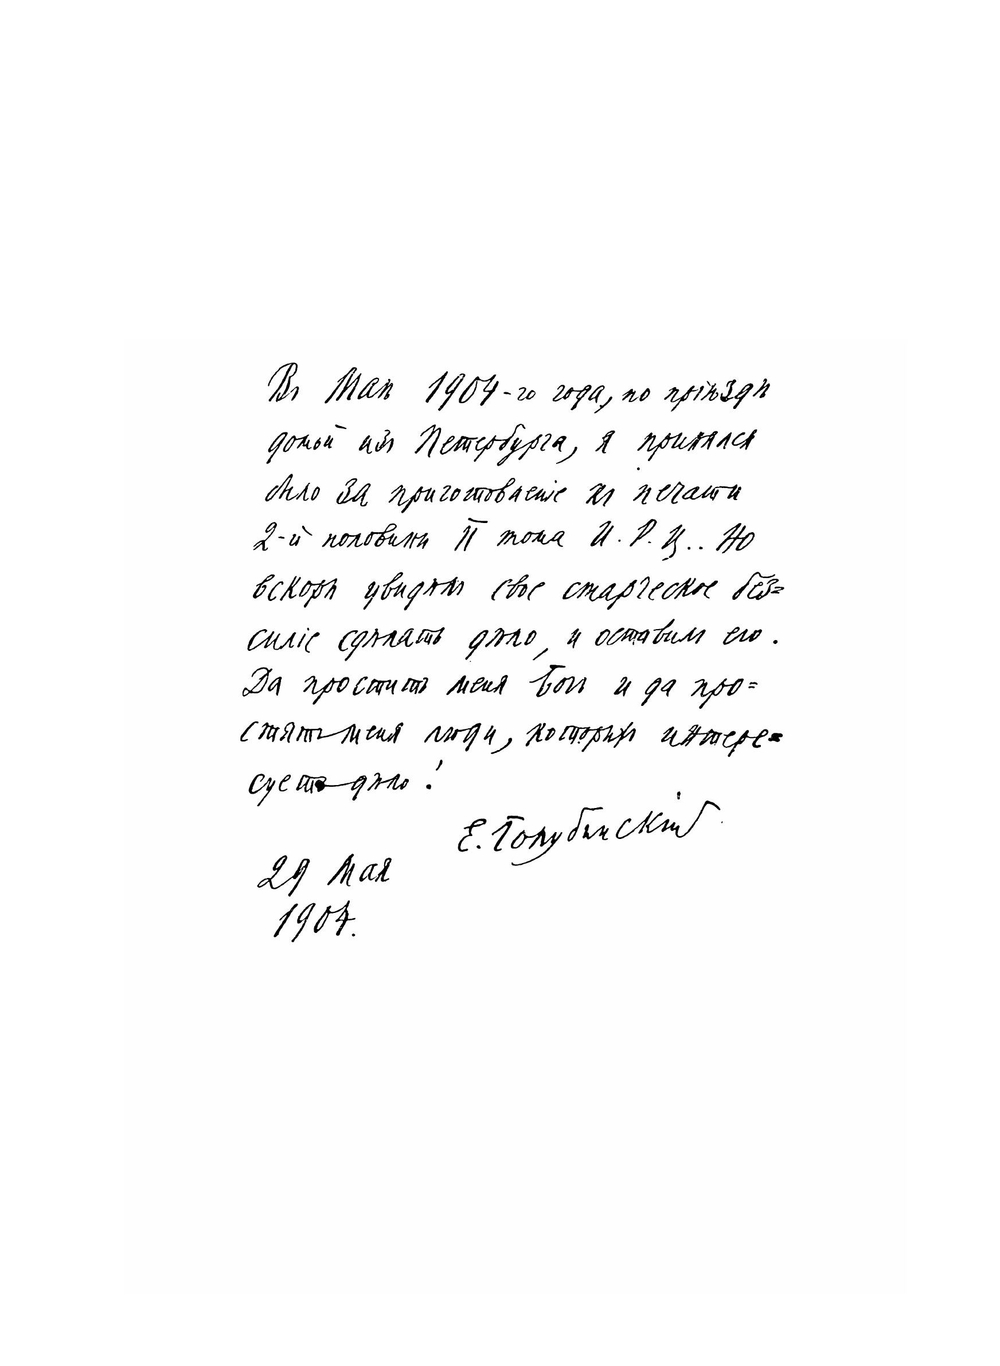 Въ Маѣ 1904-го года, по пріѣздѣ
домой изъ Петербурга, я принялся
было за приготовленіе къ печати
2-й половины II тома И. Р. Ц.. Но
вскорѣ увидѣлъ свое старческое без=
силіе сдѣлать дѣло, и оставилъ его.
Да проститъ меня Богъ и да про=
стятъ меня люди, которыхъ интере=
суетъ дѣло!
Е. Голубинскій
29 Мая
1904.